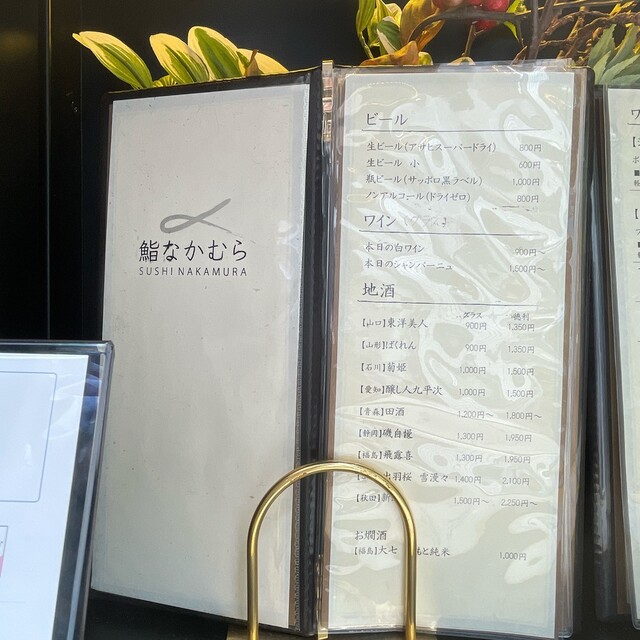 鮨なかむら
SUSHI NAKAMURA
ビール
生ビール(アサヒスーパードライ) 800円
生ビール 小 600円
瓶ビール(サッポロ黒ラベル) 1,000円
ノンアルコール(ドライゼロ) 800円
ワイン
本日の白ワイン 900円～
本日のシャンパーニュ 1,600円～
地酒
グラス 徳利
【山口】東洋美人 900円 1,350円
【山形】ばくれん 900円 1,350円
【石川】菊姫 1,000円 1,500円
【愛知】醸し人九平次 1,000円 1,500円
【青森】田酒 1,200円～ 1,800円～
【静岡】磯自慢 1,300円 1,950円
【福島】飛露喜 1,300円 1,950円
出羽桜 雪漫々 1,400円 2,100円
【秋田】新 1,500円～ 2,250円～
お燗酒
【福島】大七 もと純米 1,000円